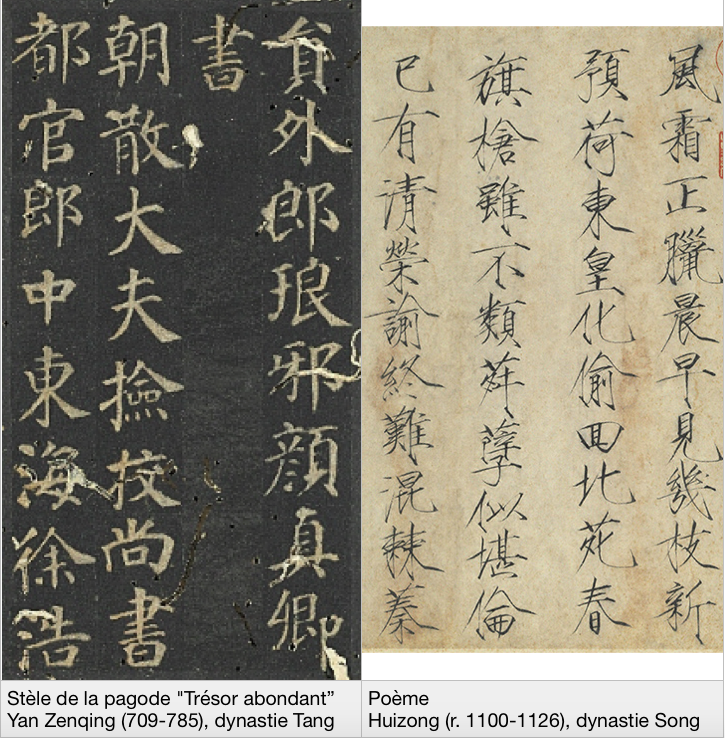 貟外郎琅邪顔真卿
書
朝散大夫撿挍尚書
都官郎中東海徐浩
風霜正臘晨早見幾枝新
預荷東皇化偷囬北苑春
旗槍雖不類荈孽似堪倫
已有清榮諭終難混棘蓁
Stèle de la pagode "Trésor abondant”
Yan Zenqing (709-785), dynastie Tang
Poème
Huizong (r. 1100-1126), dynastie Song